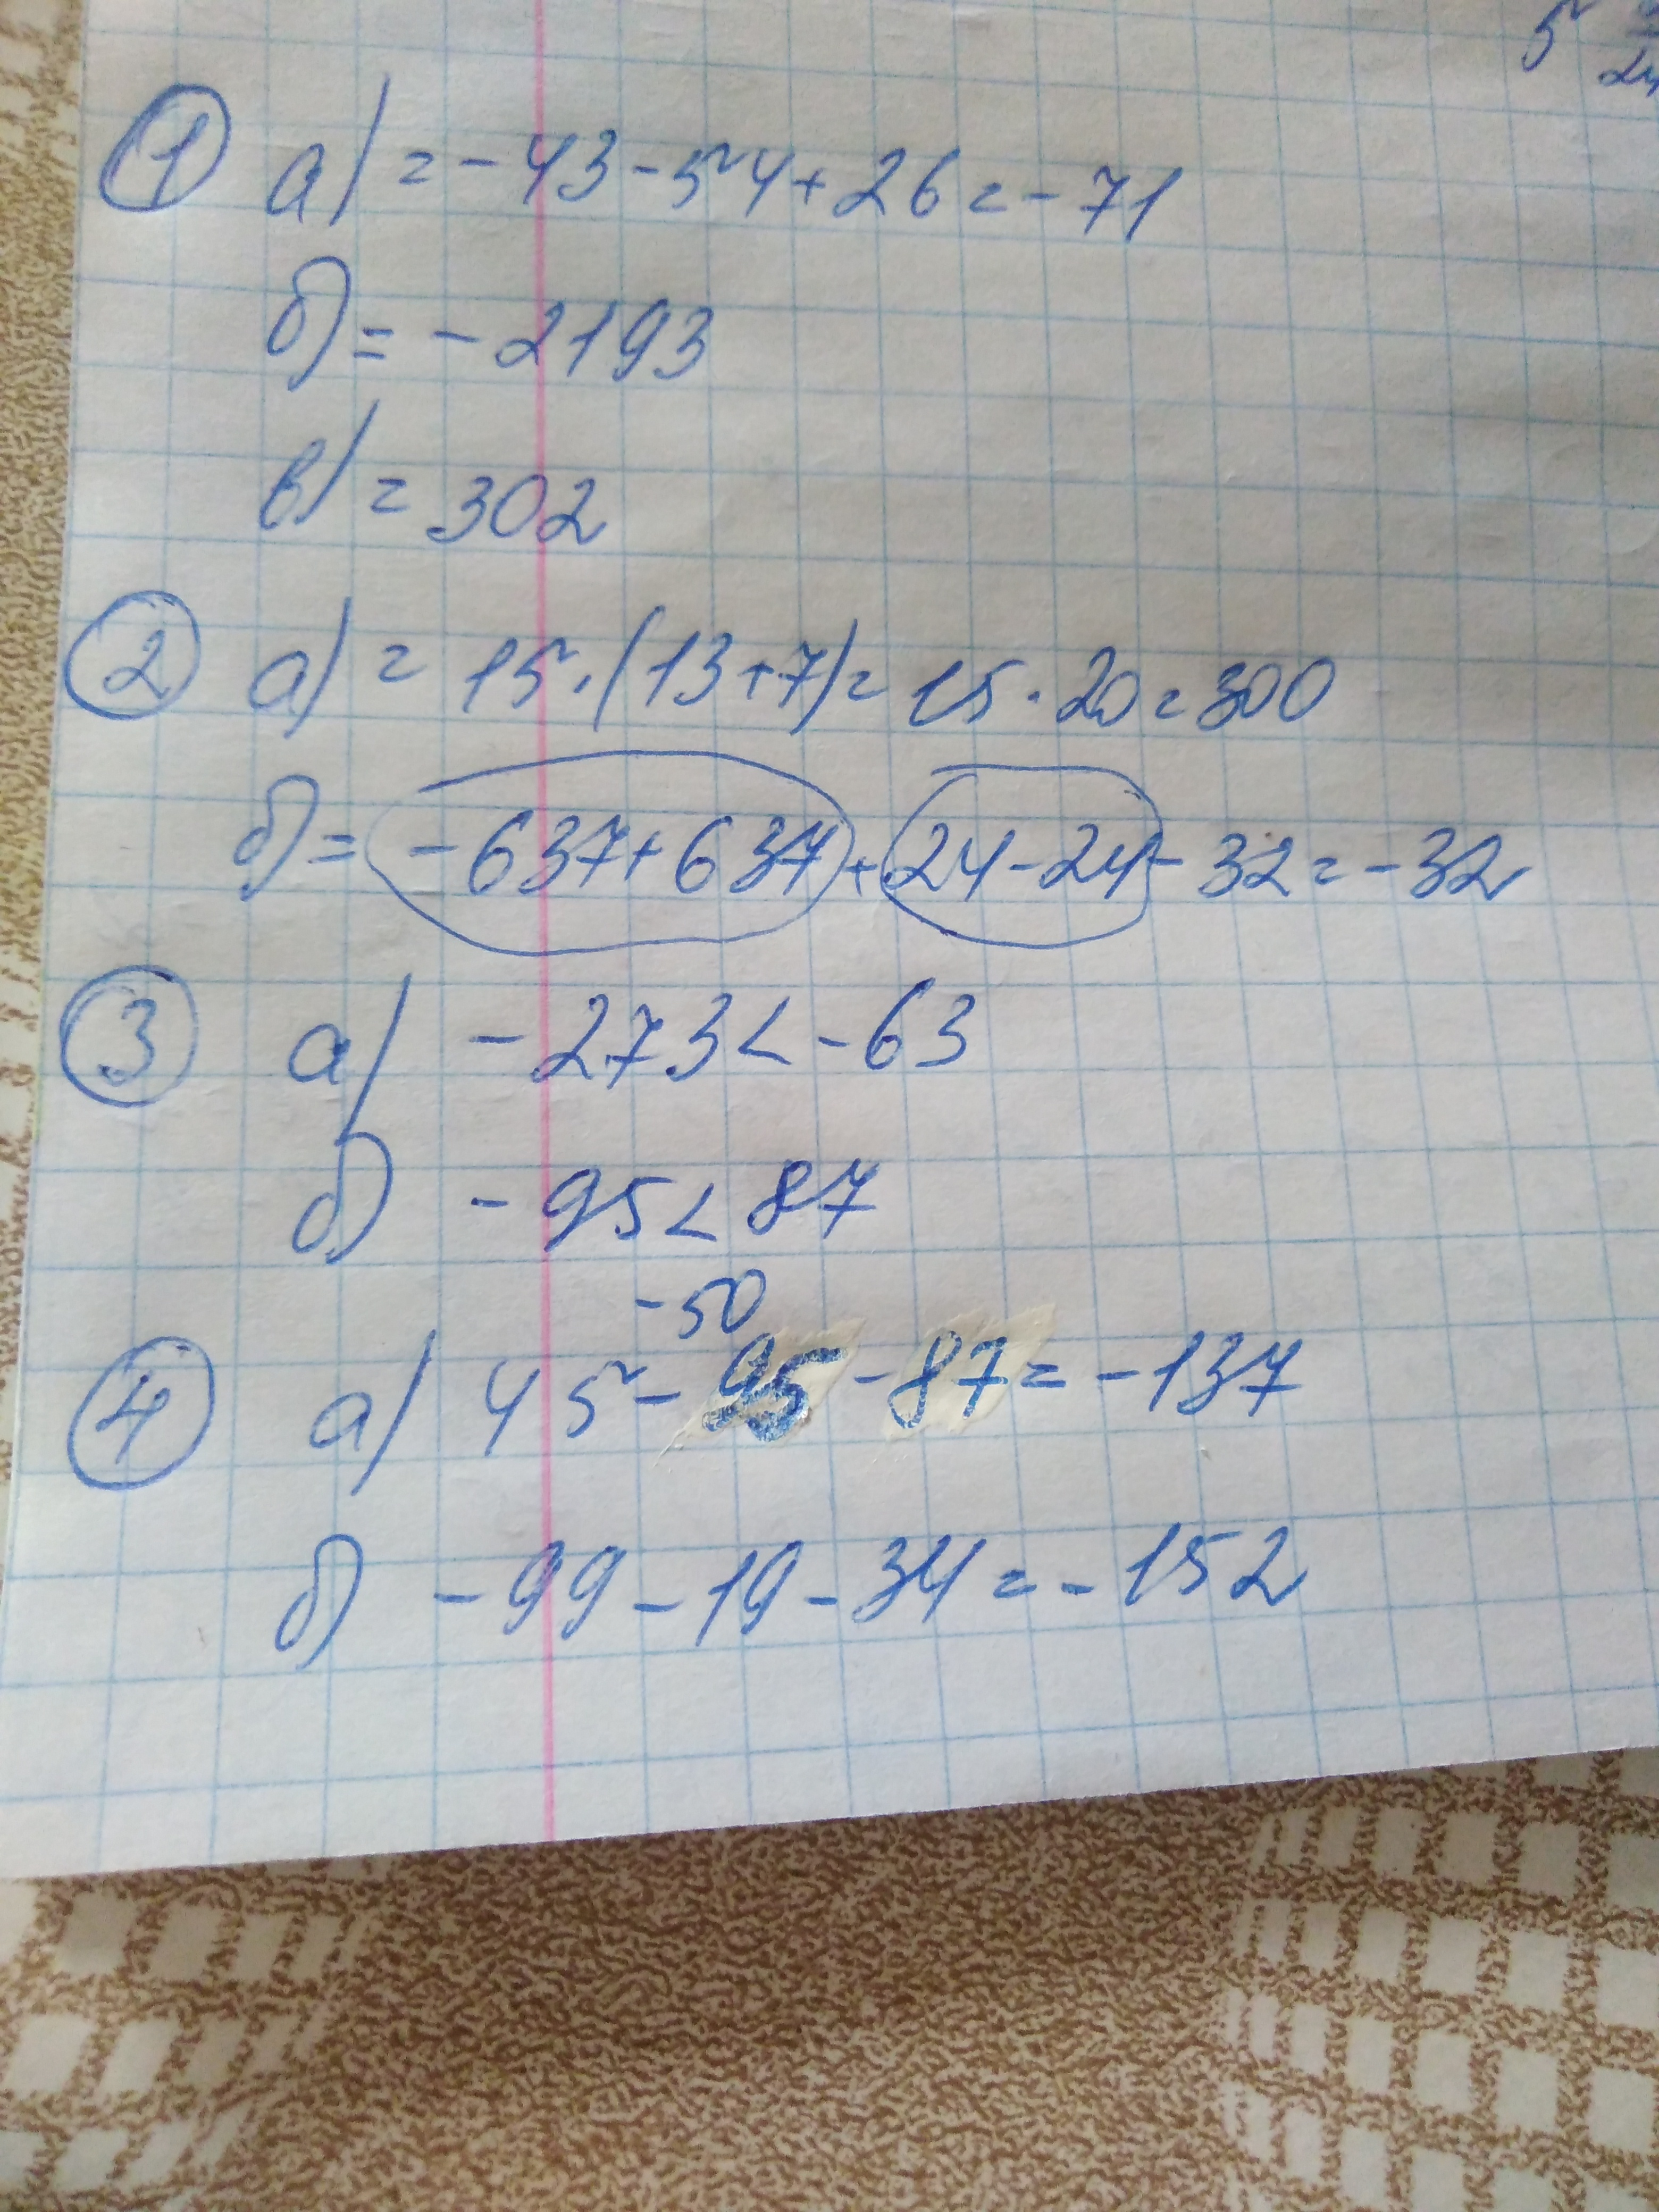 5 24
1 а) = -43-54+26=-71
б) = -2193
в) = 302
2 а) = 15·(13+7)=15·20=300
б) = -637+637+24-24-32=-32
3 а) -273<-63
б) -95<87
-50
4 а) 45-95-87=-137
б) -99-19-34=-152